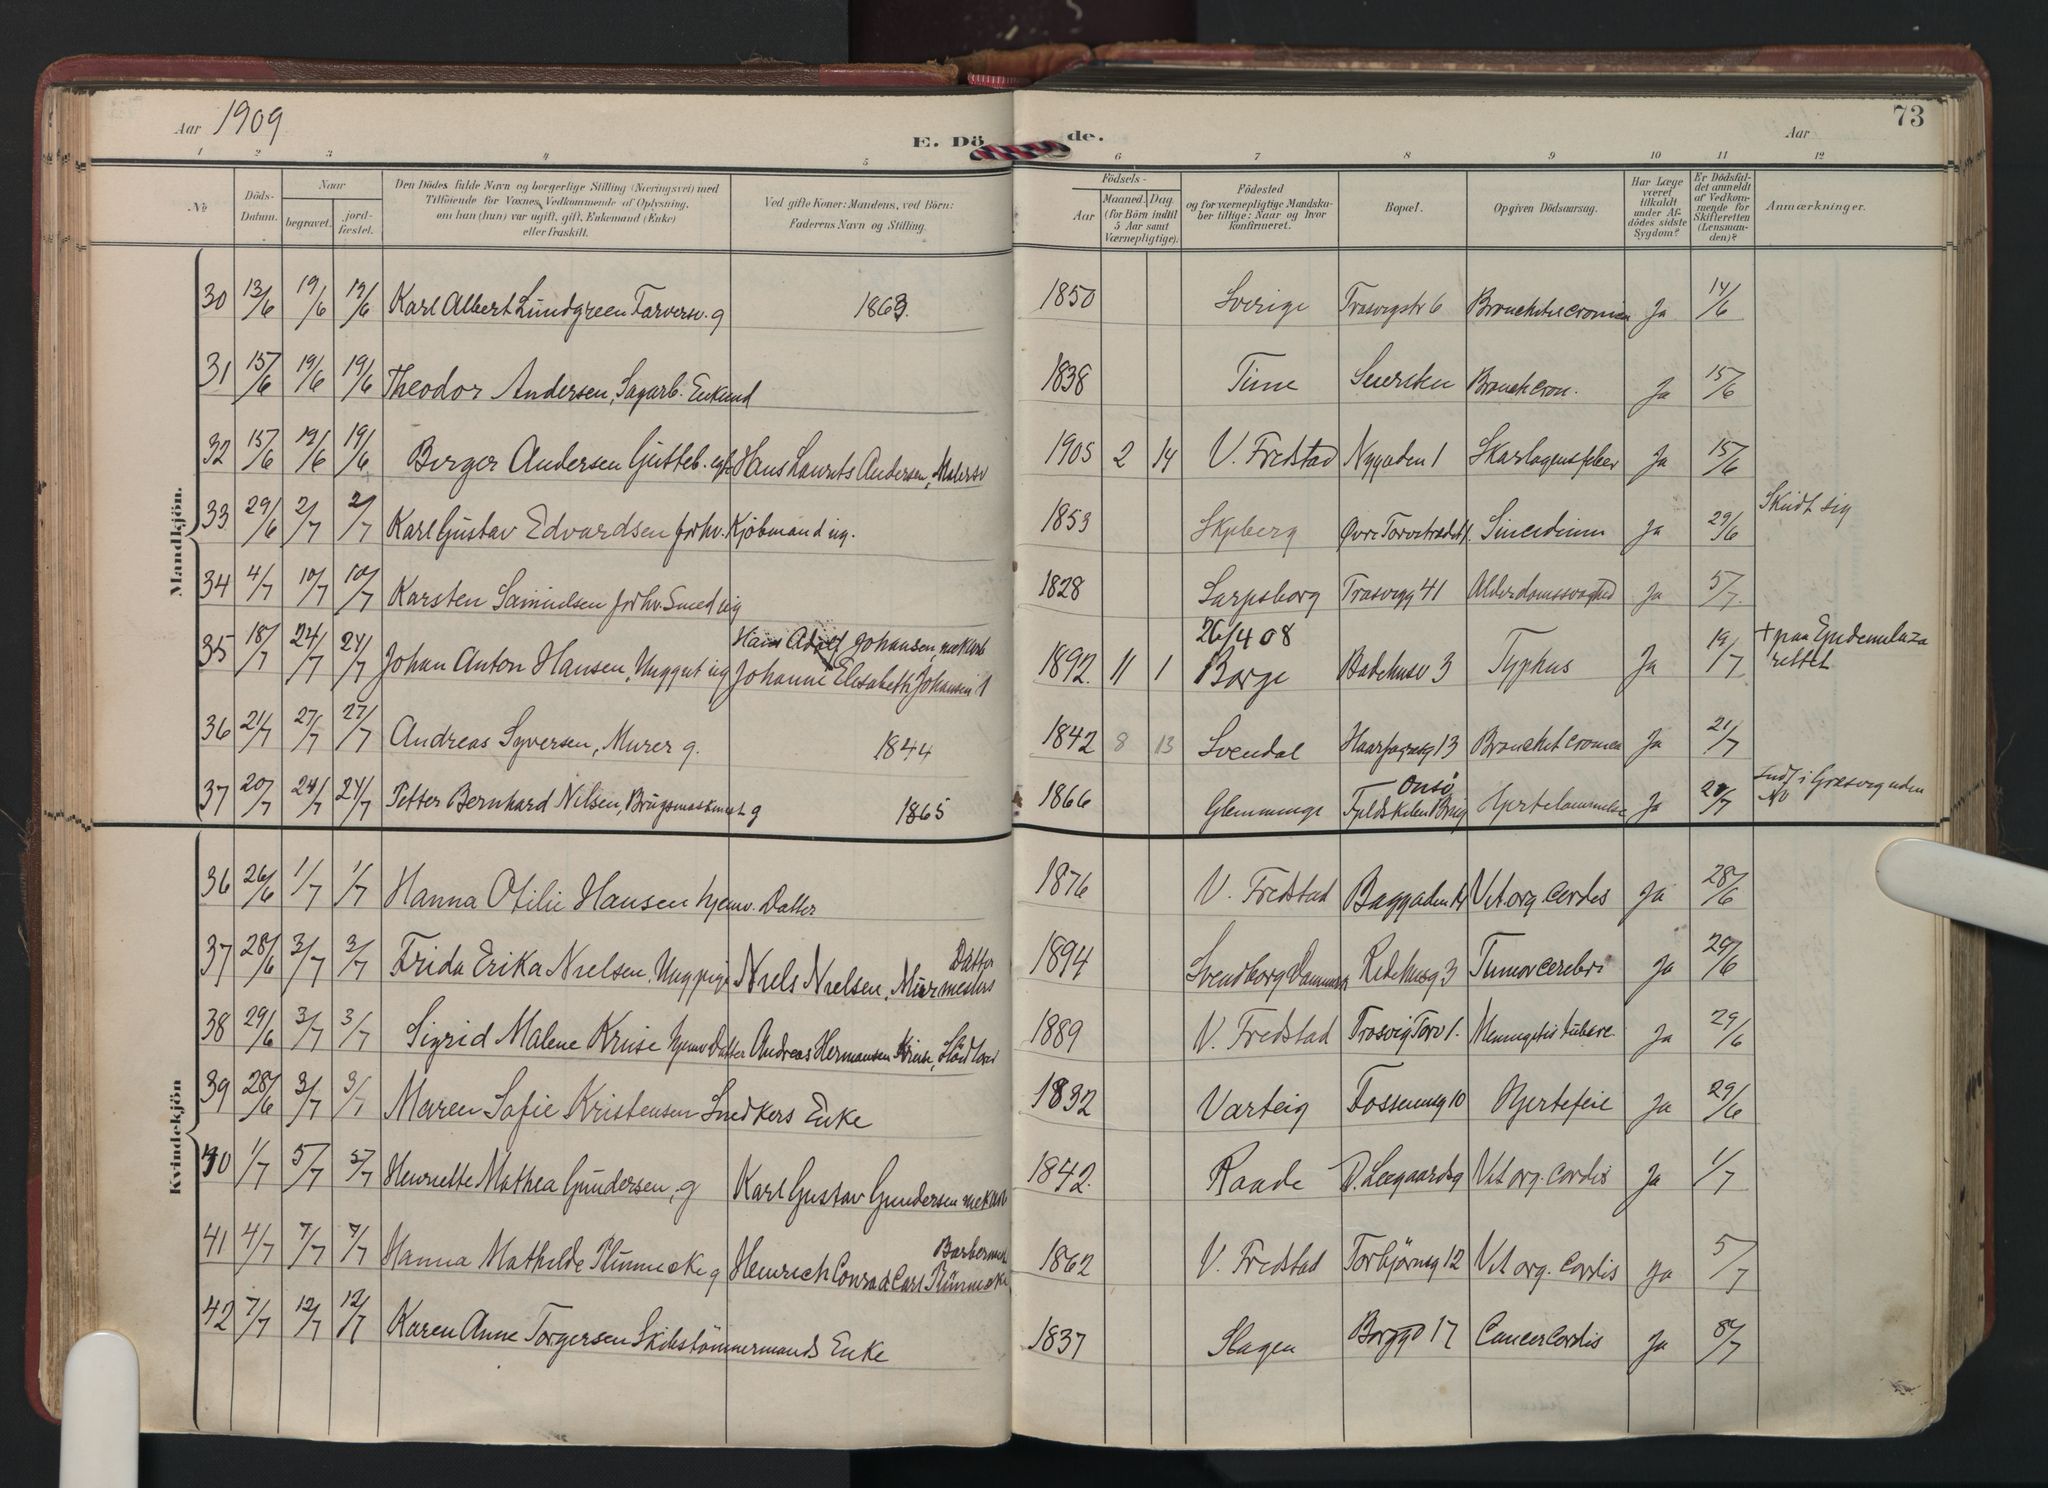 Aar 1909
E. Dö de.
Aar
73
1 2 3 4 5 6 7 8 9 10 11 12
No
Döds-Datum.
Naar
begravet.
jord-fæstet.
Den Dödes fulde Navn og borgerlige Stilling (Næringsvei) med
Tilföiende for Voxnes Vedkommende af Oplysning,
om han (hun) var ugift, gift, Enkemand (Enke)
eller fraskilt.
Ved gifte Koner: Mandens, ved Börn:
Faderens Navn og Stilling.
Födsels-
Aar
Maaned. Dag.
(for Börn indtil
5 Aar samt
Værnepligtige).
Födested
og for værnepligtige Mandska-
ber tillige: Naar og hvor
konfirmeret.
Bopæl.
Opgiven Dödsaarsag.
Har Læge
været
tilkaldt
under Af-
dödes sidste
Sygdom?
Er Dödsfal-
det anmeldt
af Vedkom-
mende for
Skifteretten
(Lensman-
den)?
Anmærkninger.
Mandkjön.
30 13/6 19/6 19/6 Karl Albert Lundgreen Farversv. g 1863. 1850 Sverige Trosvigstr 6 Ja 14/6
31 15/6 19/6 19/6 Theodor Andersen, Sagarb. Enkmd 1838 Tune Bronch cron. Ja 15/6
32 15/6 19/6 19/6 Birger Andersen Gutteb. egt. Hans Laurits Andersen, Malersv 1905 2 14 V. Fredstad Nygaden 1 Skarlagensfeber Ja 15/6
33 29/6 2/7 2/7 Karl Gustav Edvardsen forhv. Kjöbmand ug. 1853 Skjeberg Øvre Torvestrædet 1. Ja 29/6 Skudt sig
34 4/7 10/7 10/7 Karsten Samuelsen forhv. Smed ug 1828 Sarpsborg Trosvigg 41 Alderdomssvaghed Ja 5/7.
35 18/7 24/7 24/7 Johan Anton Hansen, UngGut ug Hans Adolf Johansen, mek Arb
Johanne Elisabeth Johansen 1892. 11 1 26/4 08
Borge Badehusv 3 Typhus Ja 19/7 + paa Epidemilaza
rettet
36 21/7 27/7 27/7 Andreas Syversen, Murer g. 1844 1842 8 13 Svendal Haarfagresg 13 Ja 21/7
37 20/7 24/7 24/7 Petter Bernhard Nilsen, Brugsmaskinist g 1865 1866 Glemminge Onsö
Brug Hjertelammelse Ja 21/7 i Græsviguden
Kvindekjön
36 26/6 1/7 1/7 Hanna Otilie Hansen hjemv. Datter 1876 V. Fredstad Baggaden 14 Vit. org. cordis Ja 28/6
37 28/6 3/7 3/7 Frida Erika Nielsen, Ungpige Niels Nielsen, Murmesters Datter 1894 Svendborg Danmark 3 Tumor cerebri Ja 29/6
38 29/6 3/7 3/7 Sigrid Malene Kruse hjemv Datter Andreas Hermansen Kruse, 1889 V. Fredstad Trosvig Torv 1. Meningitis tuberc. Ja 29/6
39 28/6 3/7 3/7 Maren Sofie Kristensen Snedkers Enke 1832 Varteig Fossumsg 10 Hjertefeil Ja 29/6
40 1/7 5/7 5/7 Henriette Mathea Gundersen, g Karl Gustav Gundersen mek arb 1842. Raade D. Leegaardsg Vit org. cordis Ja 1/7
41 4/7 7/7 7/7 Hanna Mathilde Plünnecke g Heinrich Conrad Carl Plünnecke Barberm 1862 V. Fredstad Torbjörnsg 12 Vit org. cordis Ja 5/7
42 7/7 12/7 12/7 Karen Anne Torgersen Skibstömmermands Enke 1837 Slagen Borgg 17 Cancer Cordis Ja 8/7